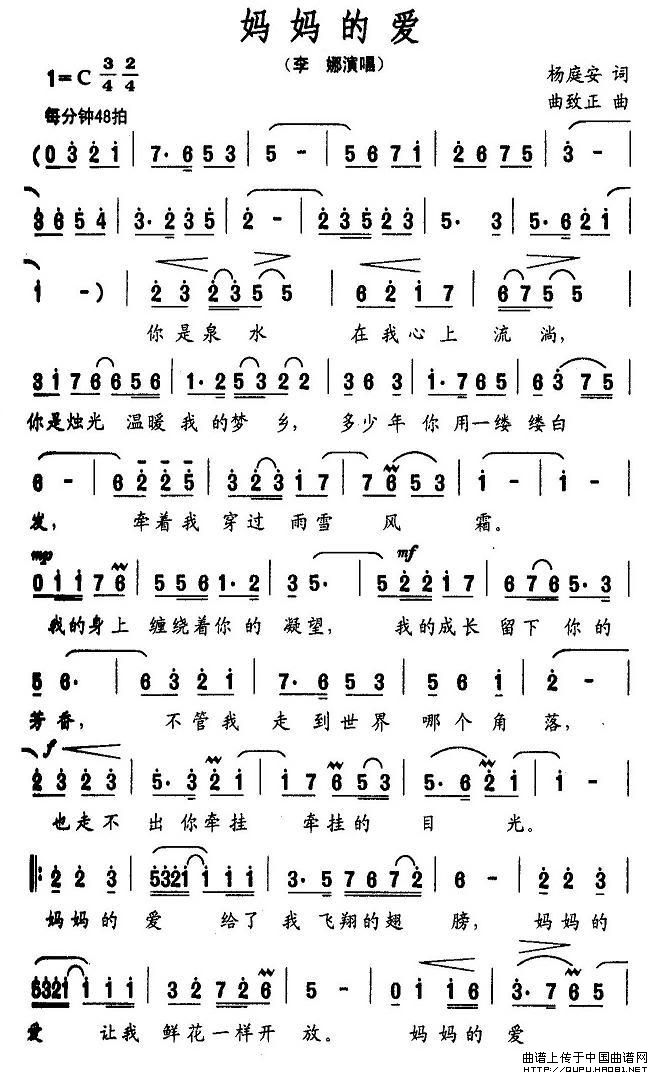 妈妈的爱
（李 娜演唱）
1=C 3/4 2/4
杨庭安 词
每分钟48拍
曲致正 曲
(0 3 2 1 | 7· 6 5 3 | 5 - | 5 6 7 1 | 2 6 7 5 | 3 -
3 6 5 4 | 3· 2 3 5 | 2 - | 2 3 5 2 3 | 5· 3 | 5· 6 2 1
1 - ) | 2 3 2 3 5 5 | 6 2 1 7 | 6 7 5 5 |
你是泉 水 在我心上 流 淌，
3 1 7 6 6 5 6 | 1· 2 5 3 2 2 | 3 6 3 | 1· 7 6 5 | 6 3 7 5 |
你是烛光 温暖我的梦 乡， 多少年你用一缕缕白
6 - | 6 2 2 5 | 3 2 3 1 7 | 7 6 5 3 | 1 - | 1 - |
发， 牵着我 穿过 雨雪 风 霜。
mp mf
0 1 1 7 6 | 5 5 6 1· 2 | 3 5· | 5 2 2 1 7 | 6 7 6 5· 3 |
我的身上 缠绕着你的凝望， 我的成长留下 你的
5 6· | 6 3 2 1 | 7· 6 5 3 | 5 6 1 | 2 -
芳香， 不管我 走到世界 哪个角 落，
f
2 3 2 3 | 5· 3 2 1 | 1 7 6 5 3 | 5· 6 2 1 | 1 - |
也走不 出你牵挂 牵挂的 目 光。
‖: 2 2 3 | 5321 1 1 1 | 3· 5 7 6 7 2 | 6 - | 2 2 3 |
妈妈的 爱 给了我飞翔的翅 膀， 妈妈的
5321 1 1 1 | 3 2 7 2 6 | 5 - | 0 1 1 6 | 3· 7 6 |
爱 让我 鲜花一样开 放。 妈妈的 爱
曲谱上传于中国曲谱网
http://QUPU.HAO81.NET